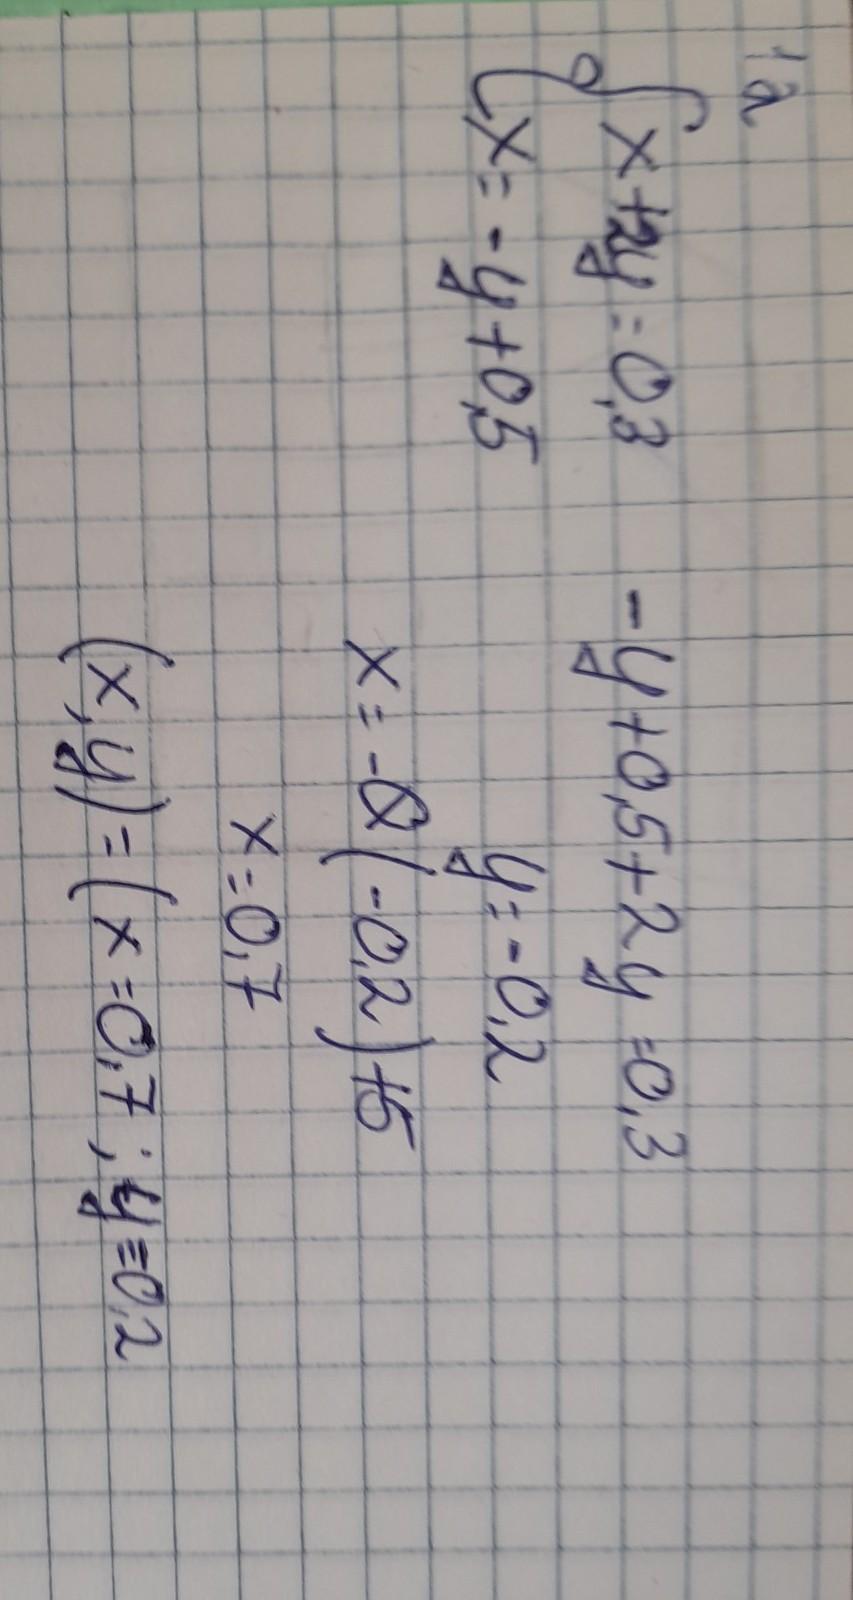 1a
x+2y=0,3
x=-y+0,5
-y+0,5+2y=0,3
y=-0,2
x=-(-0,2)+5
x=0,7
(x,y)=(x=0,7; y=0,2